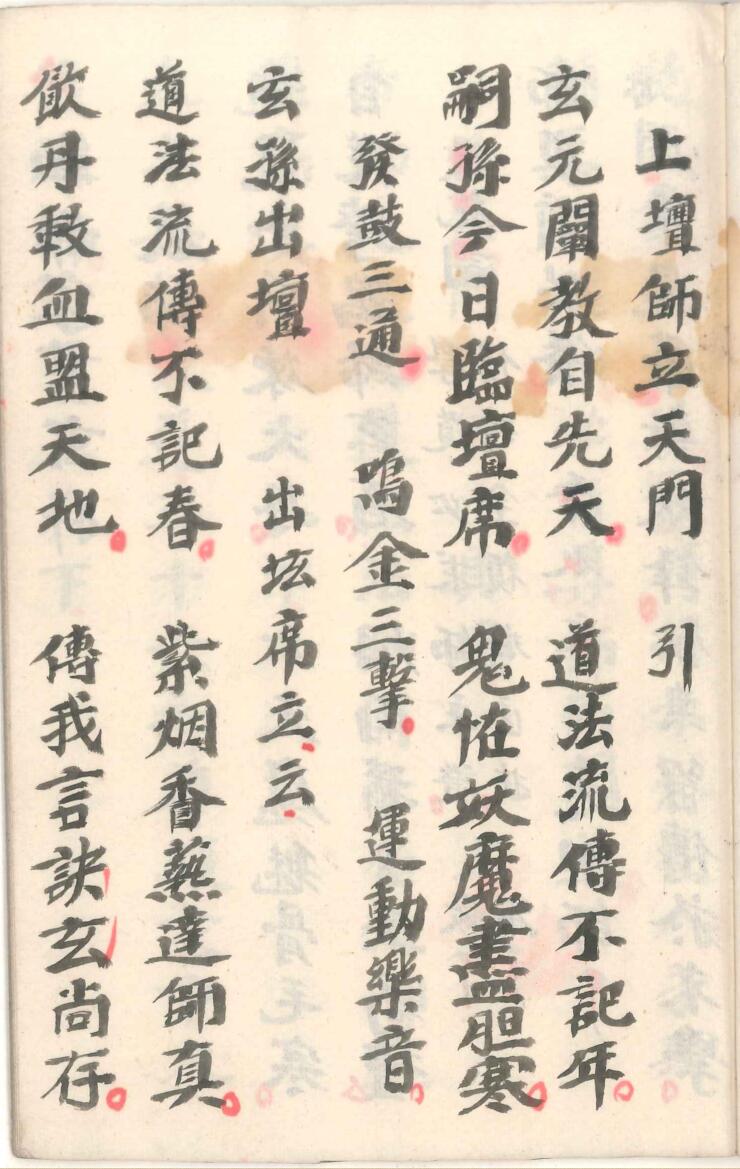 上壇師立天門　引
玄元闡教自先天　道法流傳不記年
嗣孫今日臨壇席　鬼怪妖魔盡胆寒
發鼓三通　鳴金三擊　運動樂音
玄孫出壇　出坛席立云
道法流傳不記春　紫烟香爇達師真
飲丹敎血盟天地　傳我言訣玄尚存